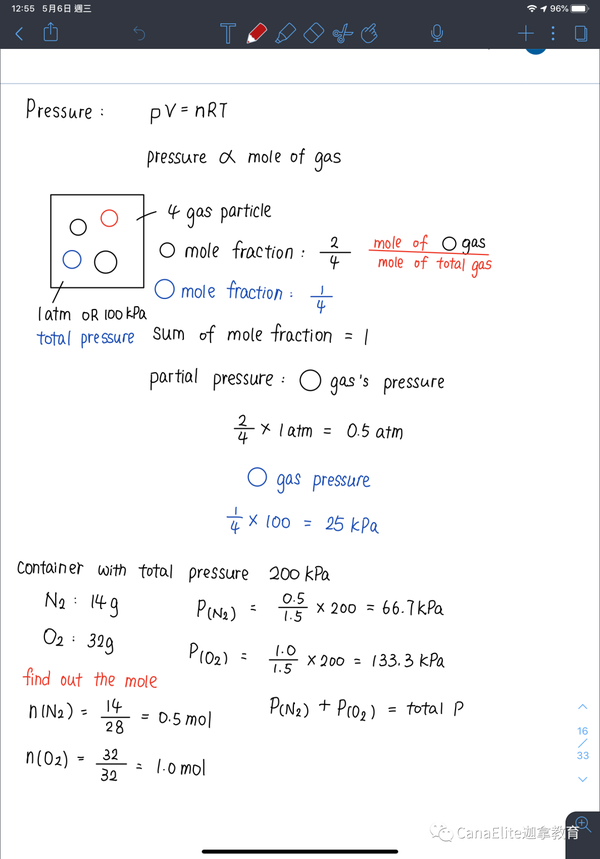 12:55 5月6日 週三
96%
Pressure : pV = nRT
pressure ∝ mole of gas
4 gas particle
○ mole fraction : 2/4 mole of ○ gas / mole of total gas
○ mole fraction : 1/4
1 atm OR 100 kPa
total pressure
sum of mole fraction = 1
partial pressure : ○ gas's pressure
2/4 × 1 atm = 0.5 atm
○ gas pressure
1/4 × 100 = 25 kPa
container with total pressure 200 kPa
N2 : 14g P(N2) = 0.5/1.5 × 200 = 66.7 kPa
O2 : 32g P(O2) = 1.0/1.5 × 200 = 133.3 kPa
find out the mole
n(N2) = 14/28 = 0.5 mol P(N2) + P(O2) = total P
n(O2) = 32/32 = 1.0 mol
16
/
33
CanaElite迦拿教育